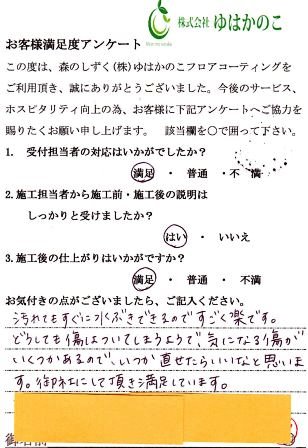 株式会社 ゆはかのこ
お客様満足度アンケート
この度は、森のしずく(株)ゆはかのこフロアコーティングを
ご利用頂き、誠にありがとうございました。今後のサービス、
ホスピタリティ向上の為、お客様に下記アンケートへご協力を
賜りたくお願い申し上げます。 該当欄を○で囲って下さい。
1. 受付担当者の対応はいかがでしたか?
満足 ・ 普通 ・不 満
2.施工担当者から施工前・施工後の説明は
しっかりと受けましたか?
はい ・ いいえ
3.施工後の仕上がりはいかがですか?
満足 ・ 普通 ・ 不満
お気付きの点がございましたら、ご記入ください。
汚れてもすぐに水ぶきできるのですごく楽です。
どうしても傷はついてしまうようで、気になる傷が
いくつかあるので、いつか直せたらいいなと思いま
す。御社にして頂き満足しています。